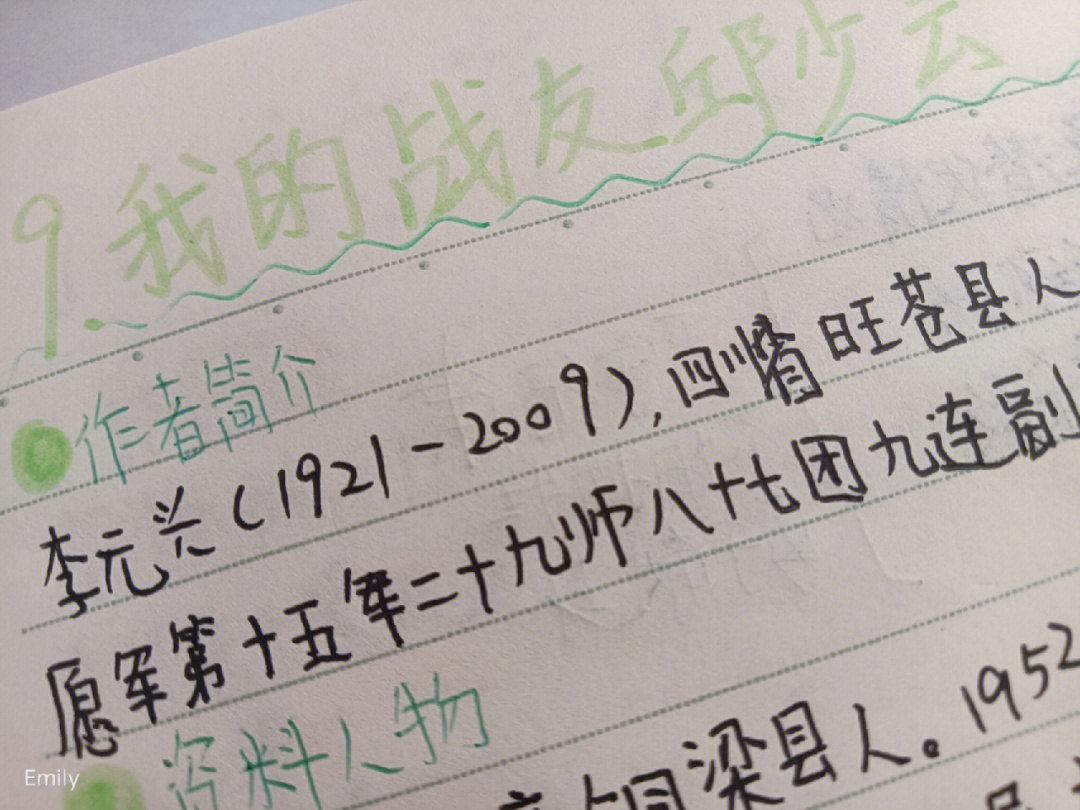 9.我的战友邱少云
作者简介
李元兴(1921-2009),四川省旺苍县人
愿军第十五军二十九师八十七团九连副
资料人物
梁县人。1952
Emily